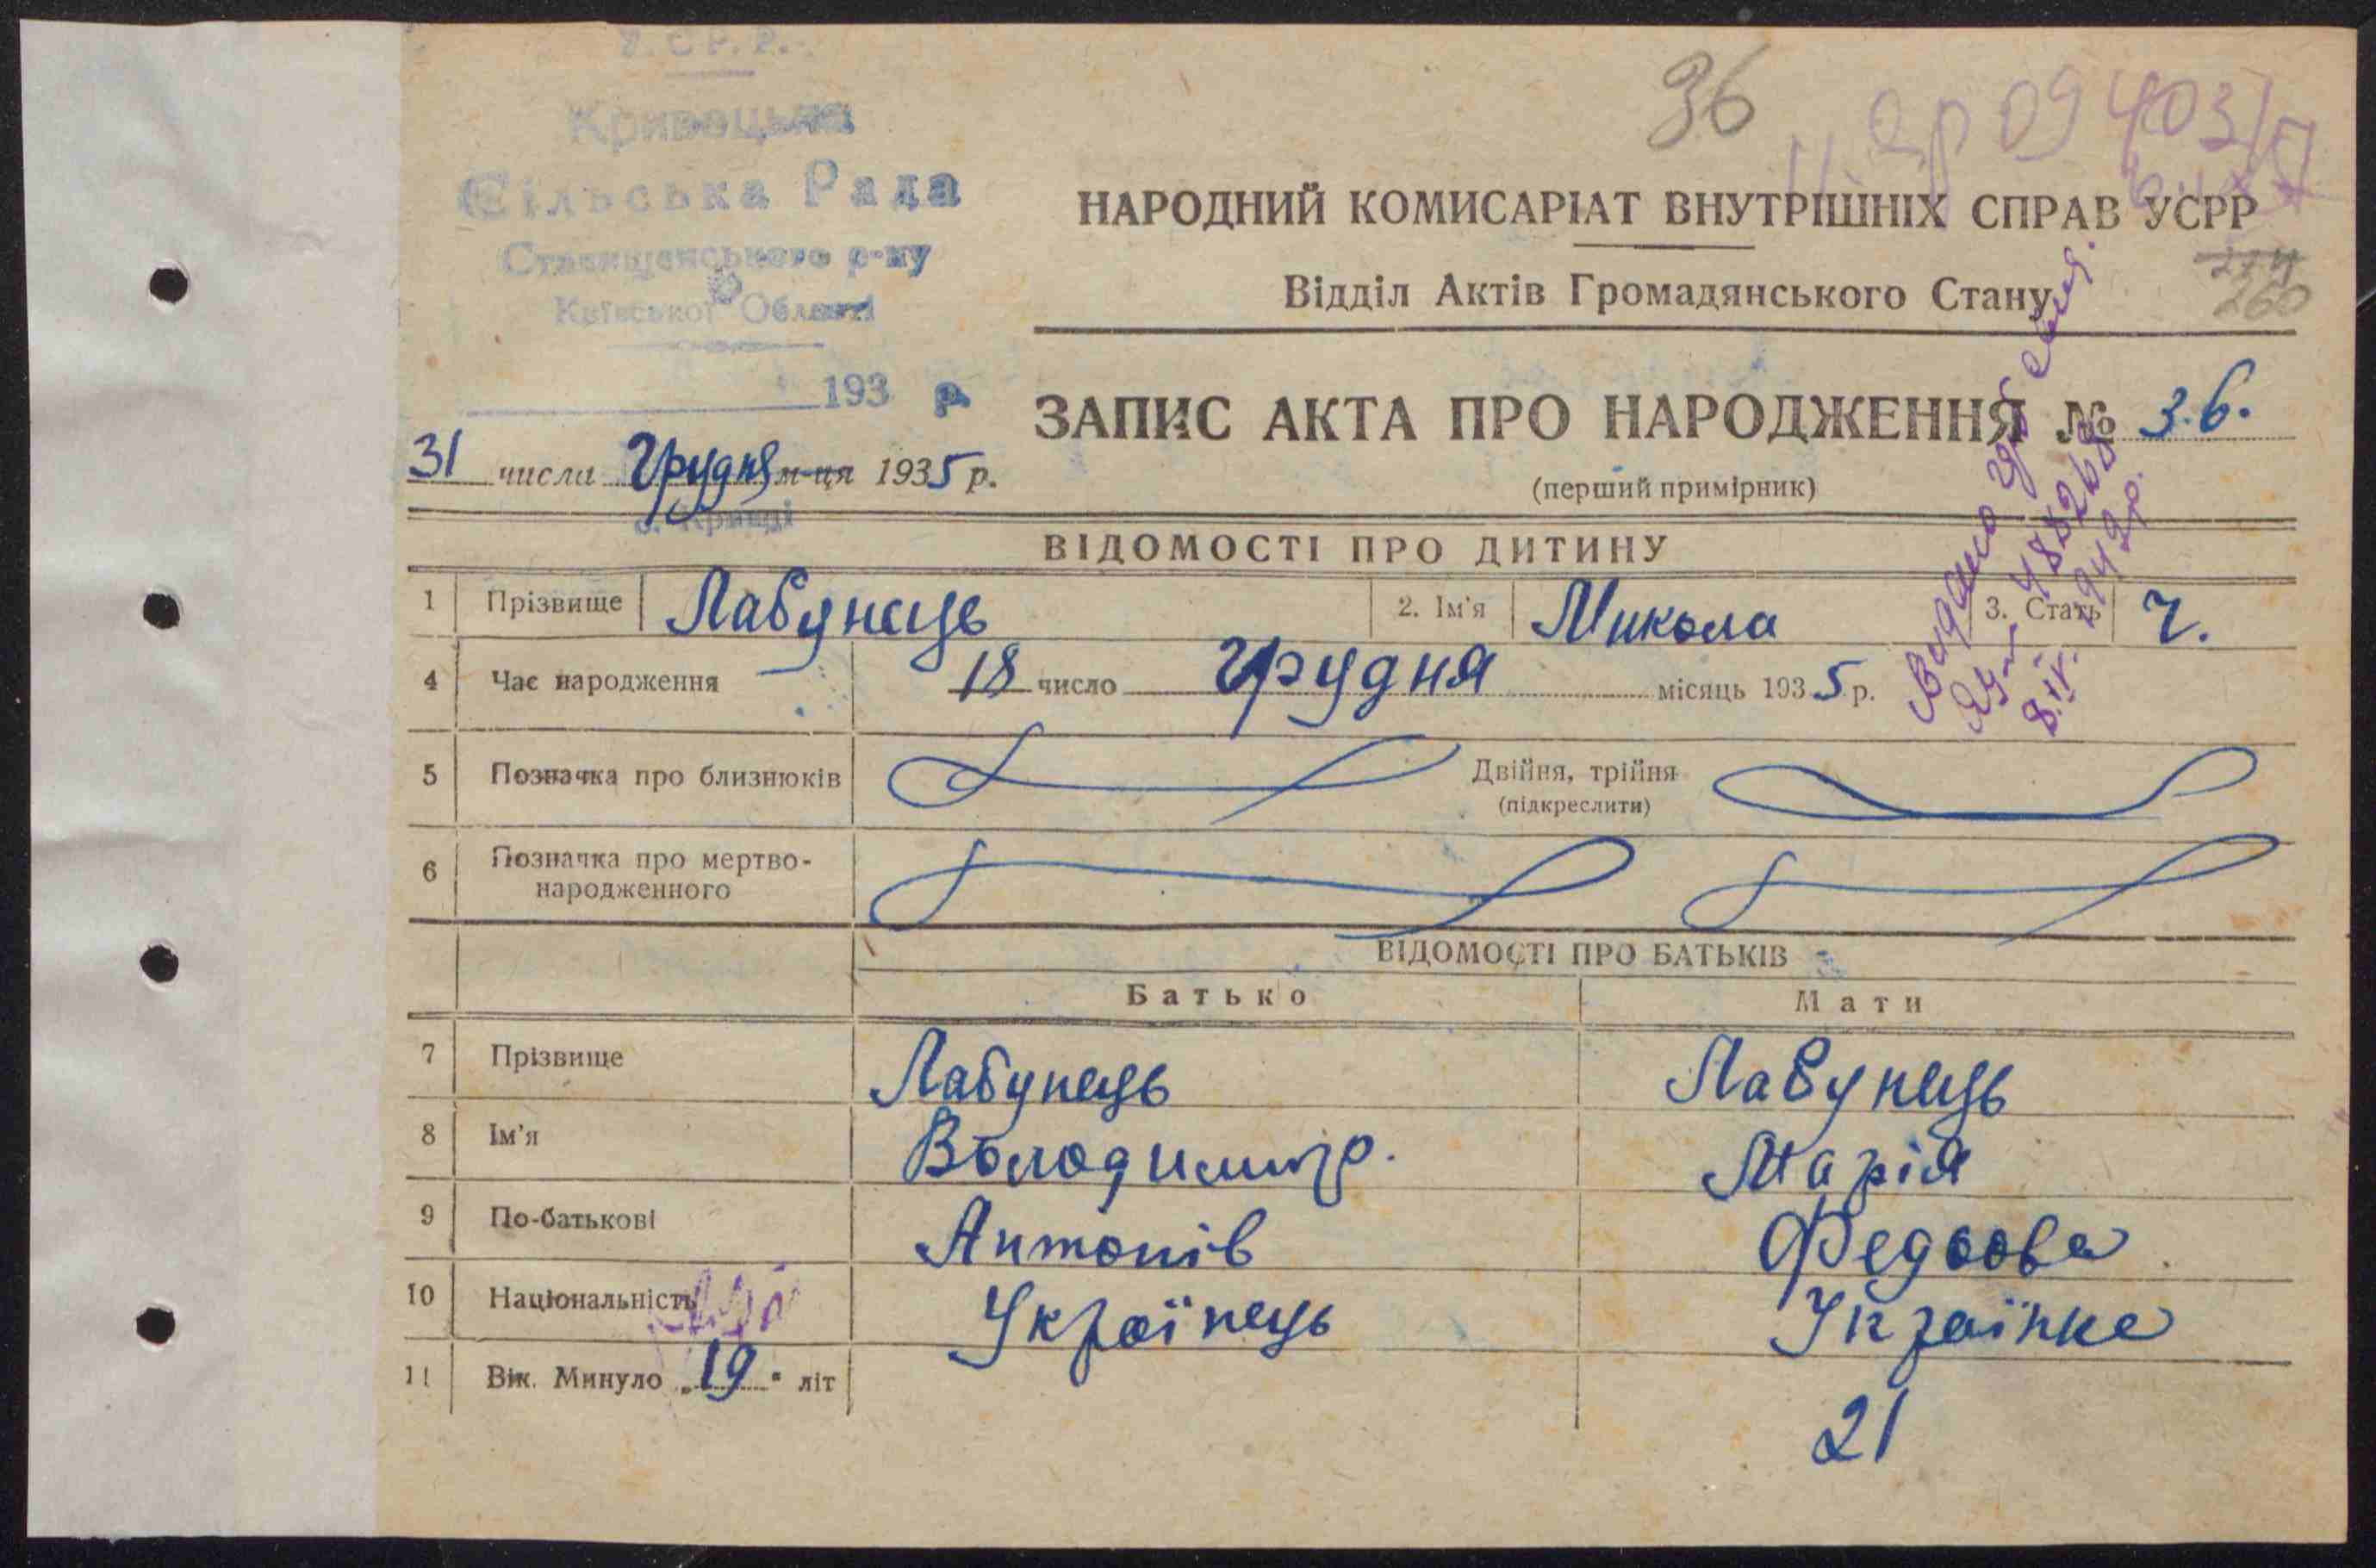 У.С.Р.Р.
Кривецька
Сільська Рада
Ставищенського р-ну
Київської Області
193 р.
с. Кривці
36
260
НАРОДНИЙ КОМИСАРІАТ ВНУТРІШНІХ СПРАВ УСРР
Відділ Актів Громадянського Стану
ЗАПИС АКТА ПРО НАРОДЖЕННЯ № 36.
(перший примірник)
31 числа Грудня м-ця 1935 р.
Видано
8.IV. 1942р.
ВІДОМОСТІ ПРО ДИТИНУ
1 Прізвище Лабунець 2. Ім'я Микола 3. Стать Ч.
4 Час народження 18 число Грудня місяць 1935 р.
5 Позначка про близнюків Двійня, трійня
(підкреслити)
6 Позначка про мертво-
народженного
ВІДОМОСТІ ПРО БАТЬКІВ
Батько Мати
7 Прізвище Лабунець Лабунець
8 Ім'я Володимир. Марія
9 По-батькові Антонів Федорова
10 Національність Українець Українка
11 Вік. Минуло „19" літ 21